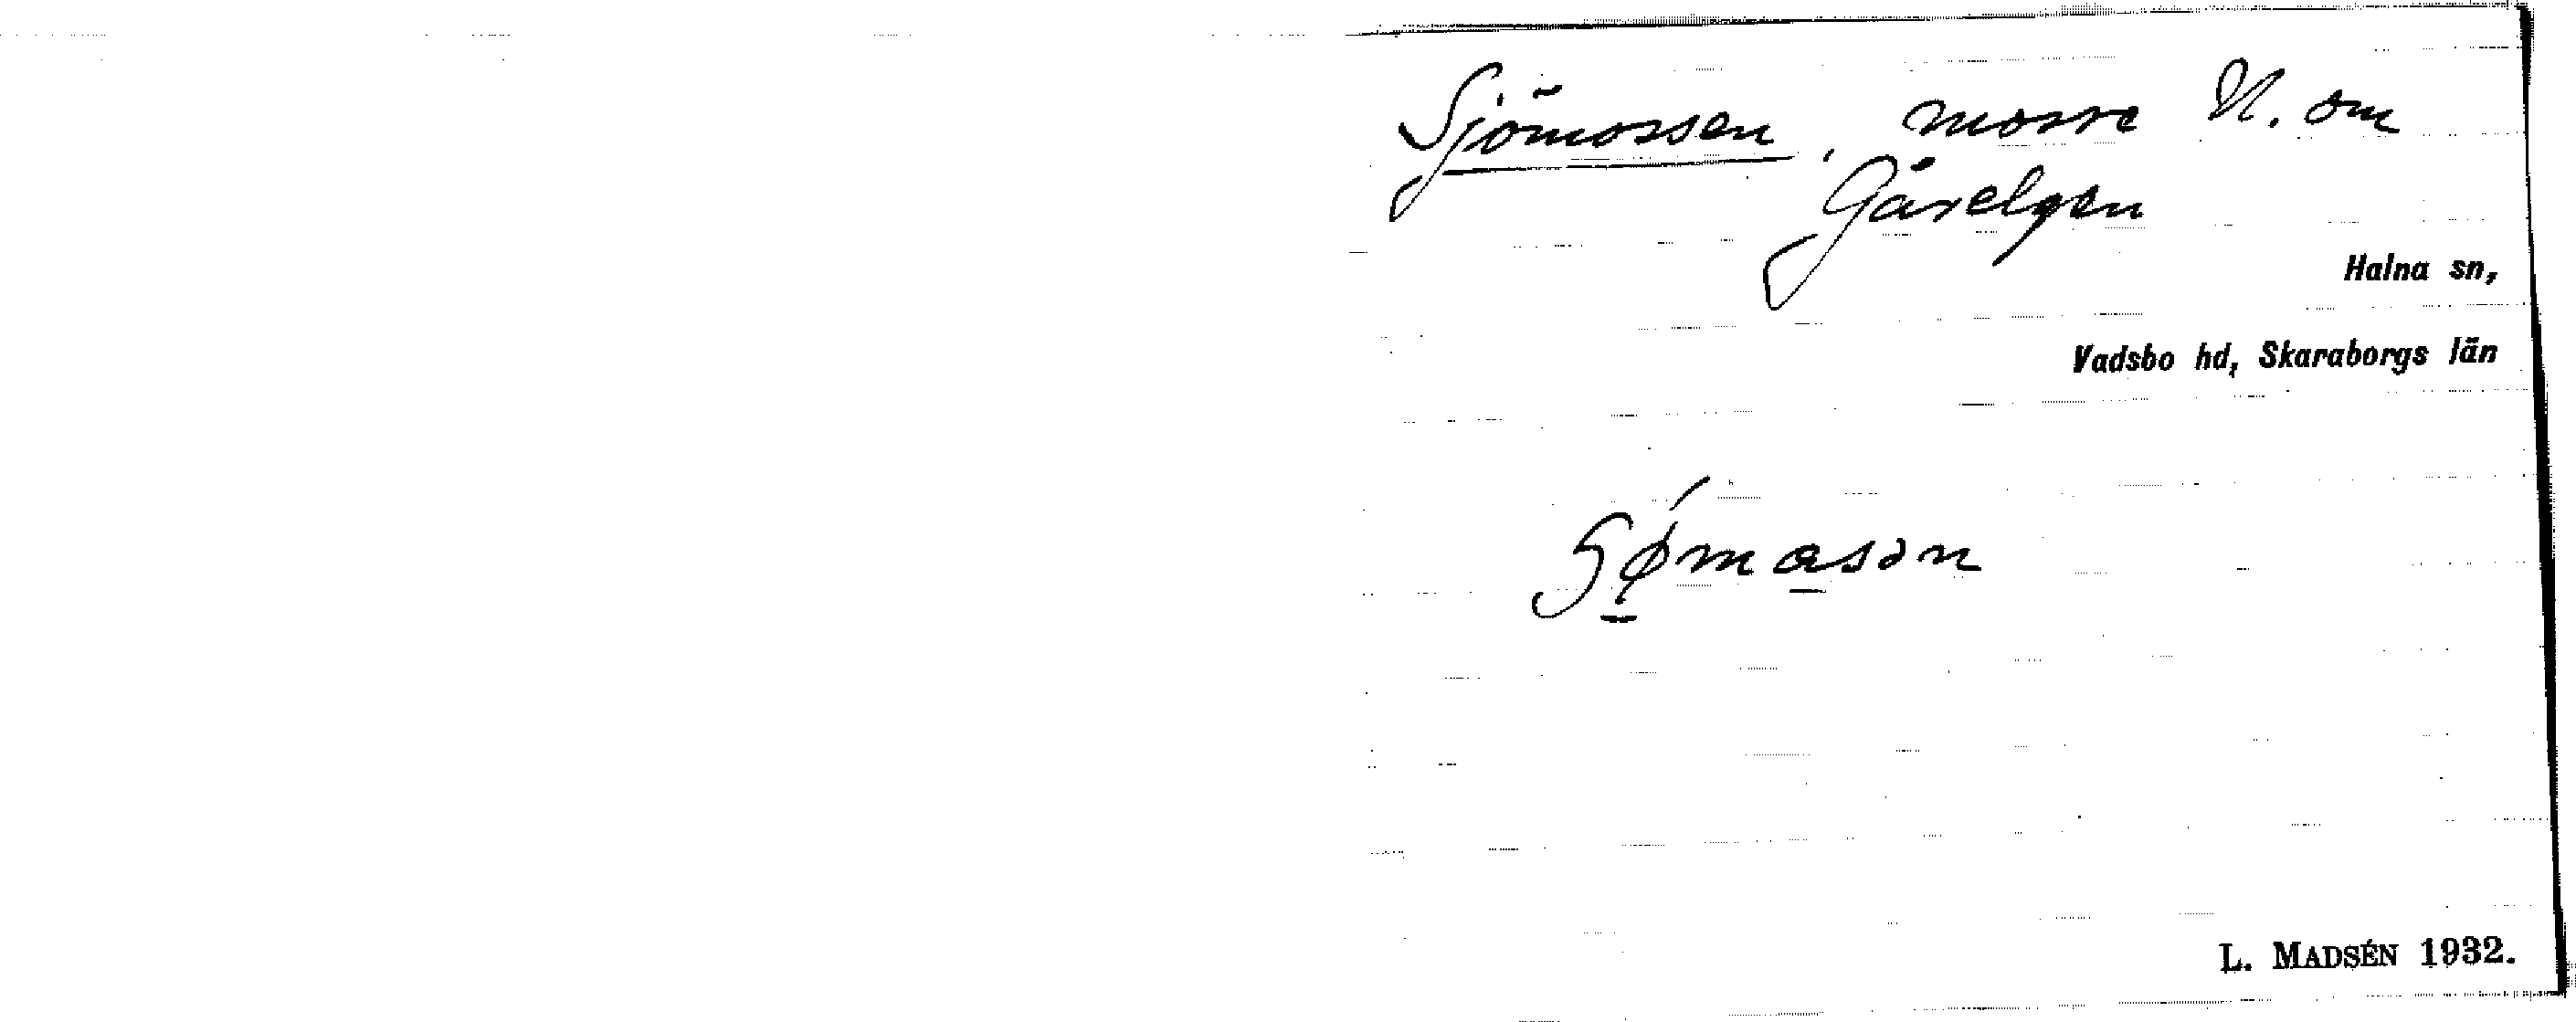 Sjömossen, mosse N. om
Gåselgen
Halna sn,
Vadsbo hd, Skaraborgs län
L. MADSÉN 1932.